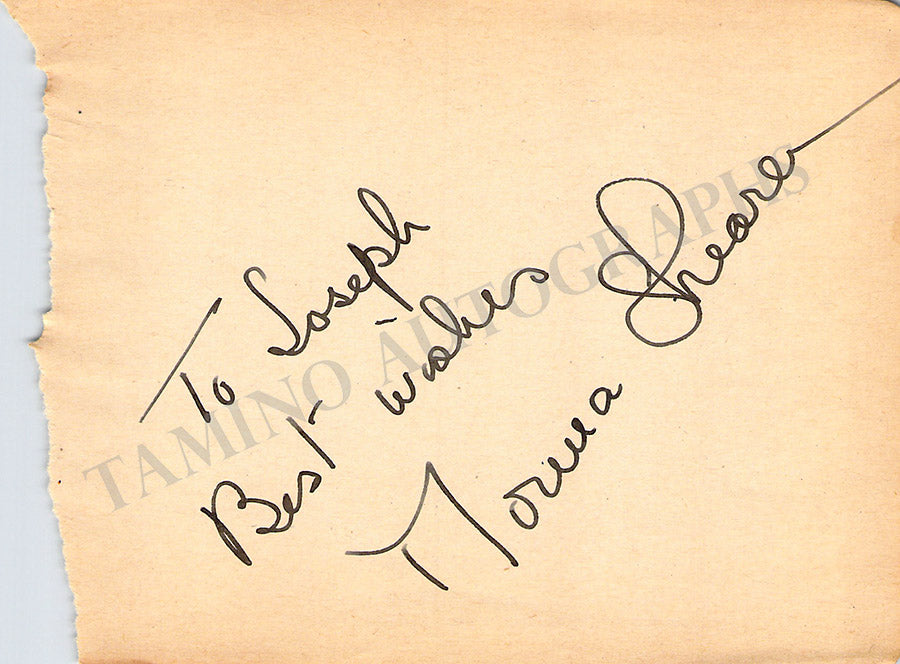 To Joseph
Best wishes
Norma Shearer
TAMINO AUTOGRAPHS